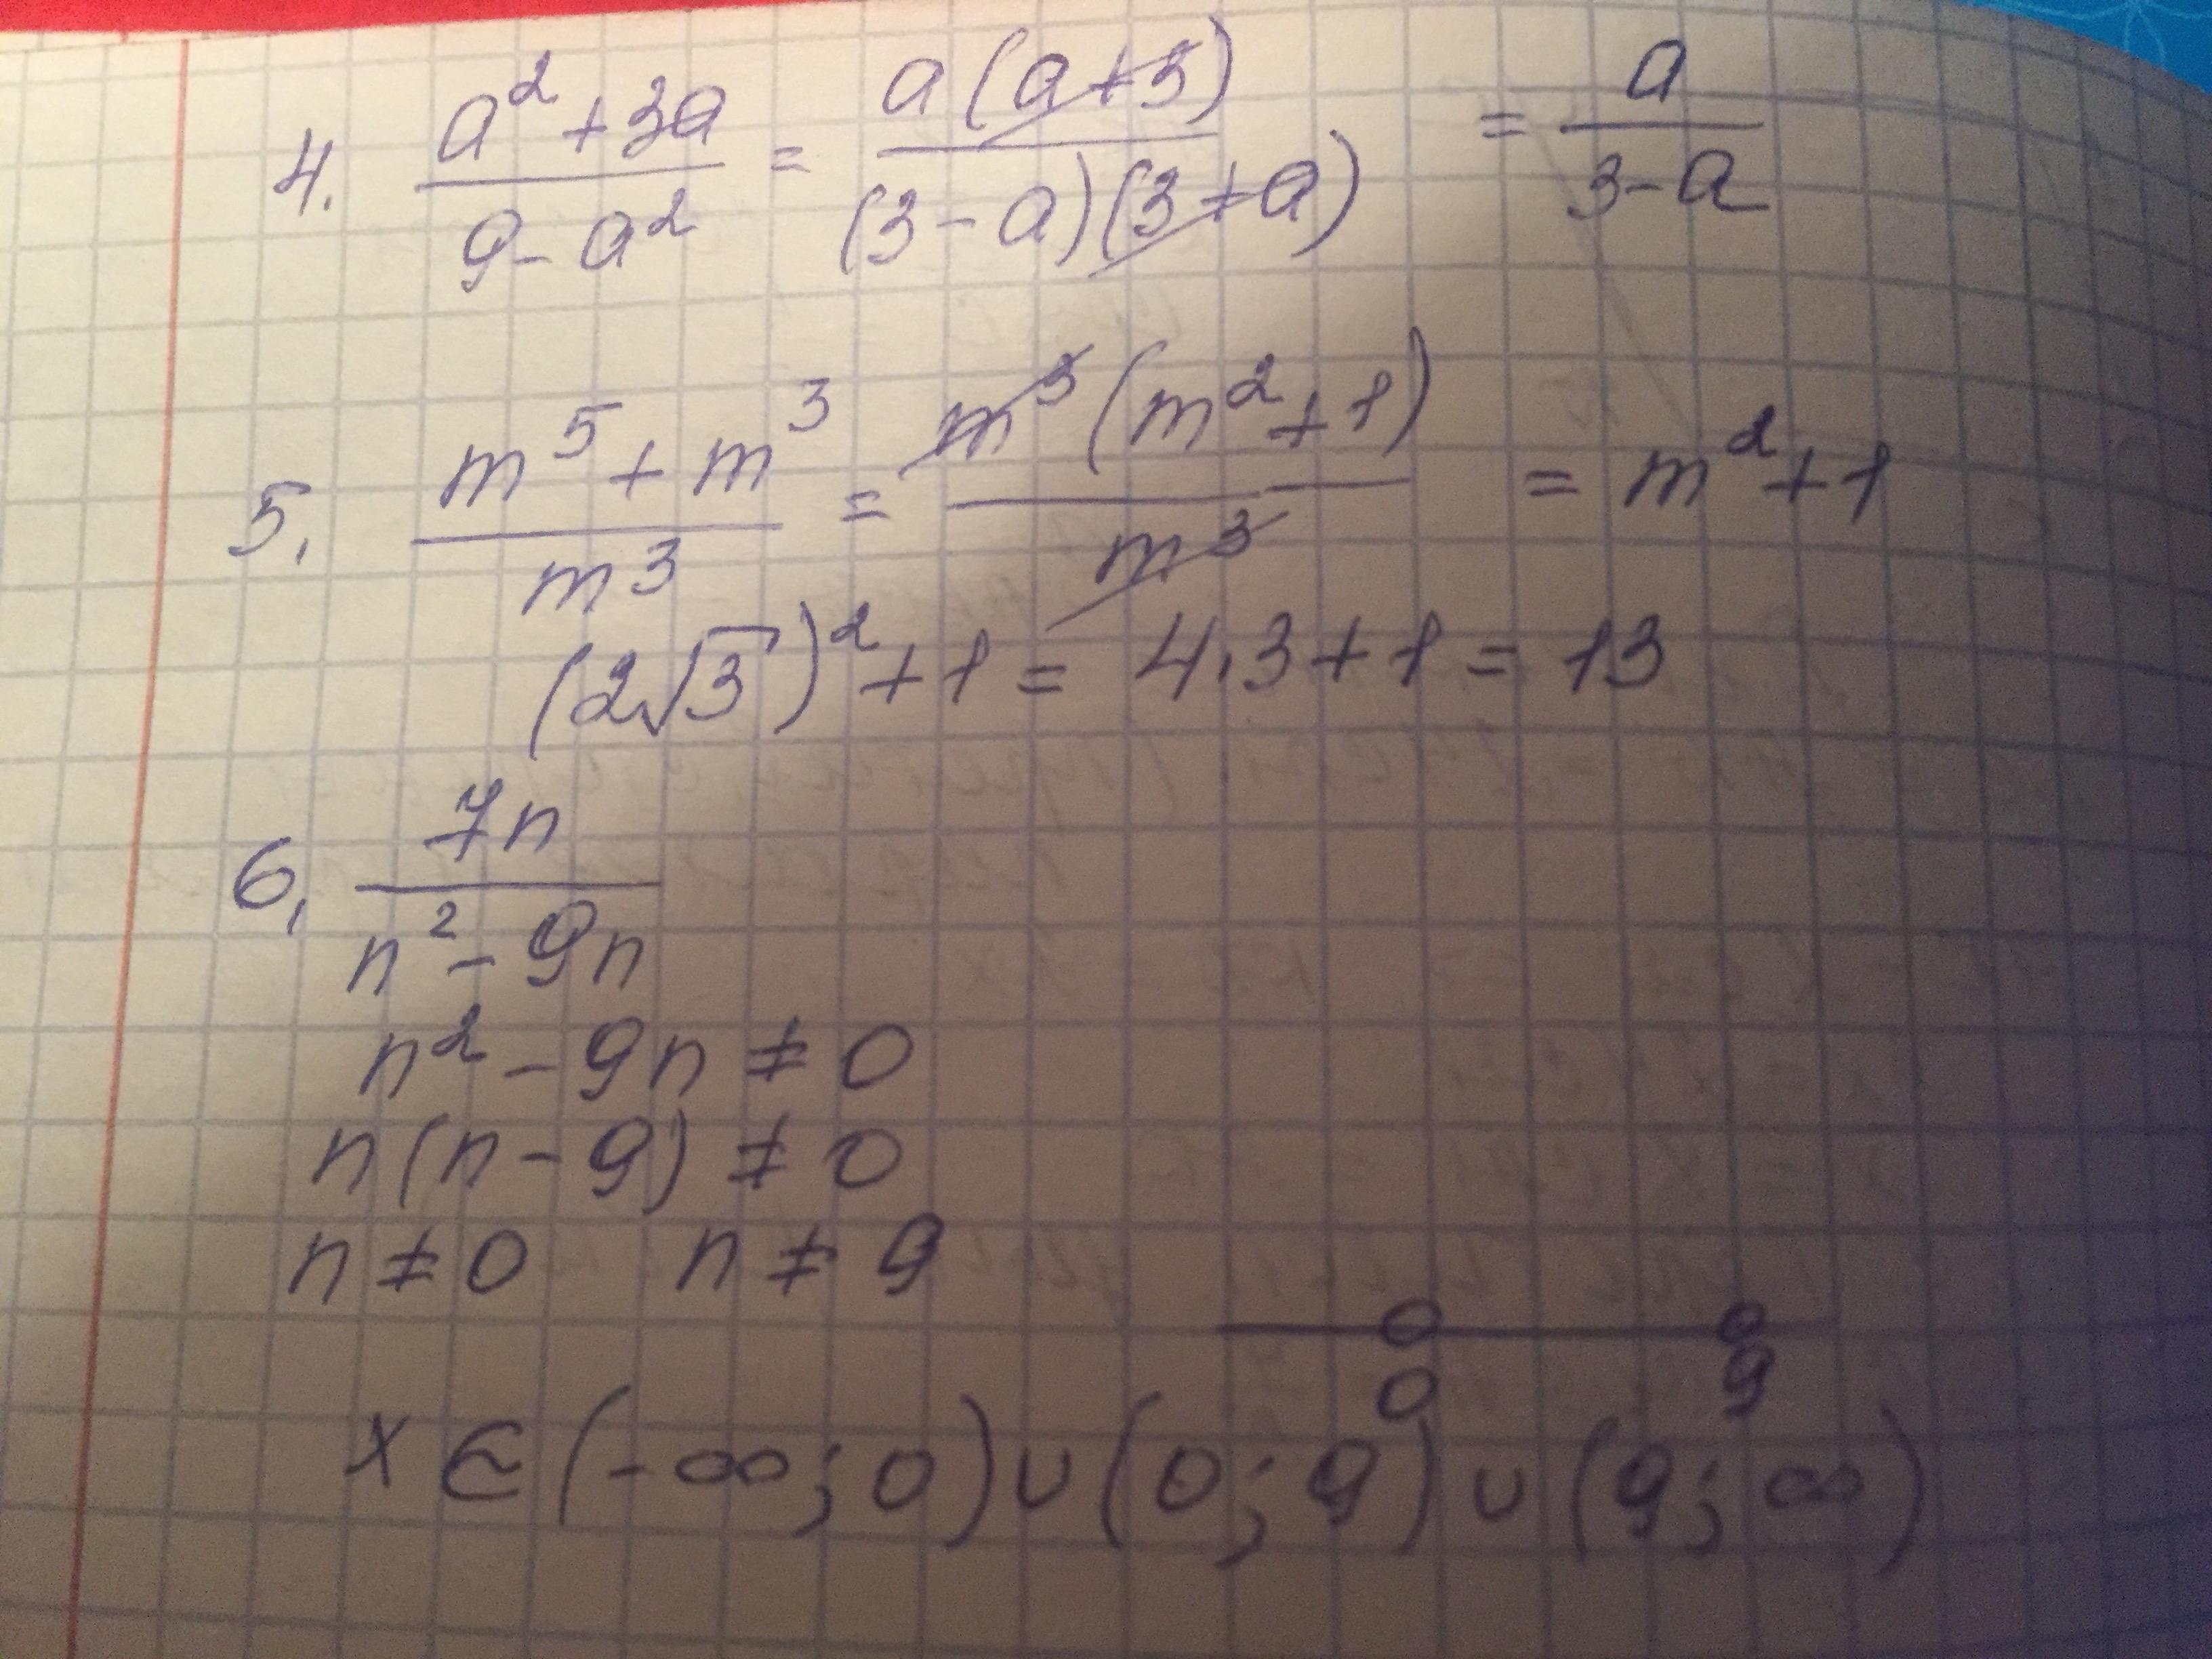 4. (a² + 3a)/(9 - a²) = a(a+3)/((3-a)(3+a)) = a/(3-a)
5. (m⁵ + m³)/m³ = m³(m²+1)/m³ = m²+1
(2√3)² + 1 = 4·3+1 = 13
6. 7n/(n² - 9n)
n² - 9n ≠ 0
n(n-9) ≠ 0
n ≠ 0 n ≠ 9
0 9
x ∈ (-∞; 0) ∪ (0; 9) ∪ (9; ∞)